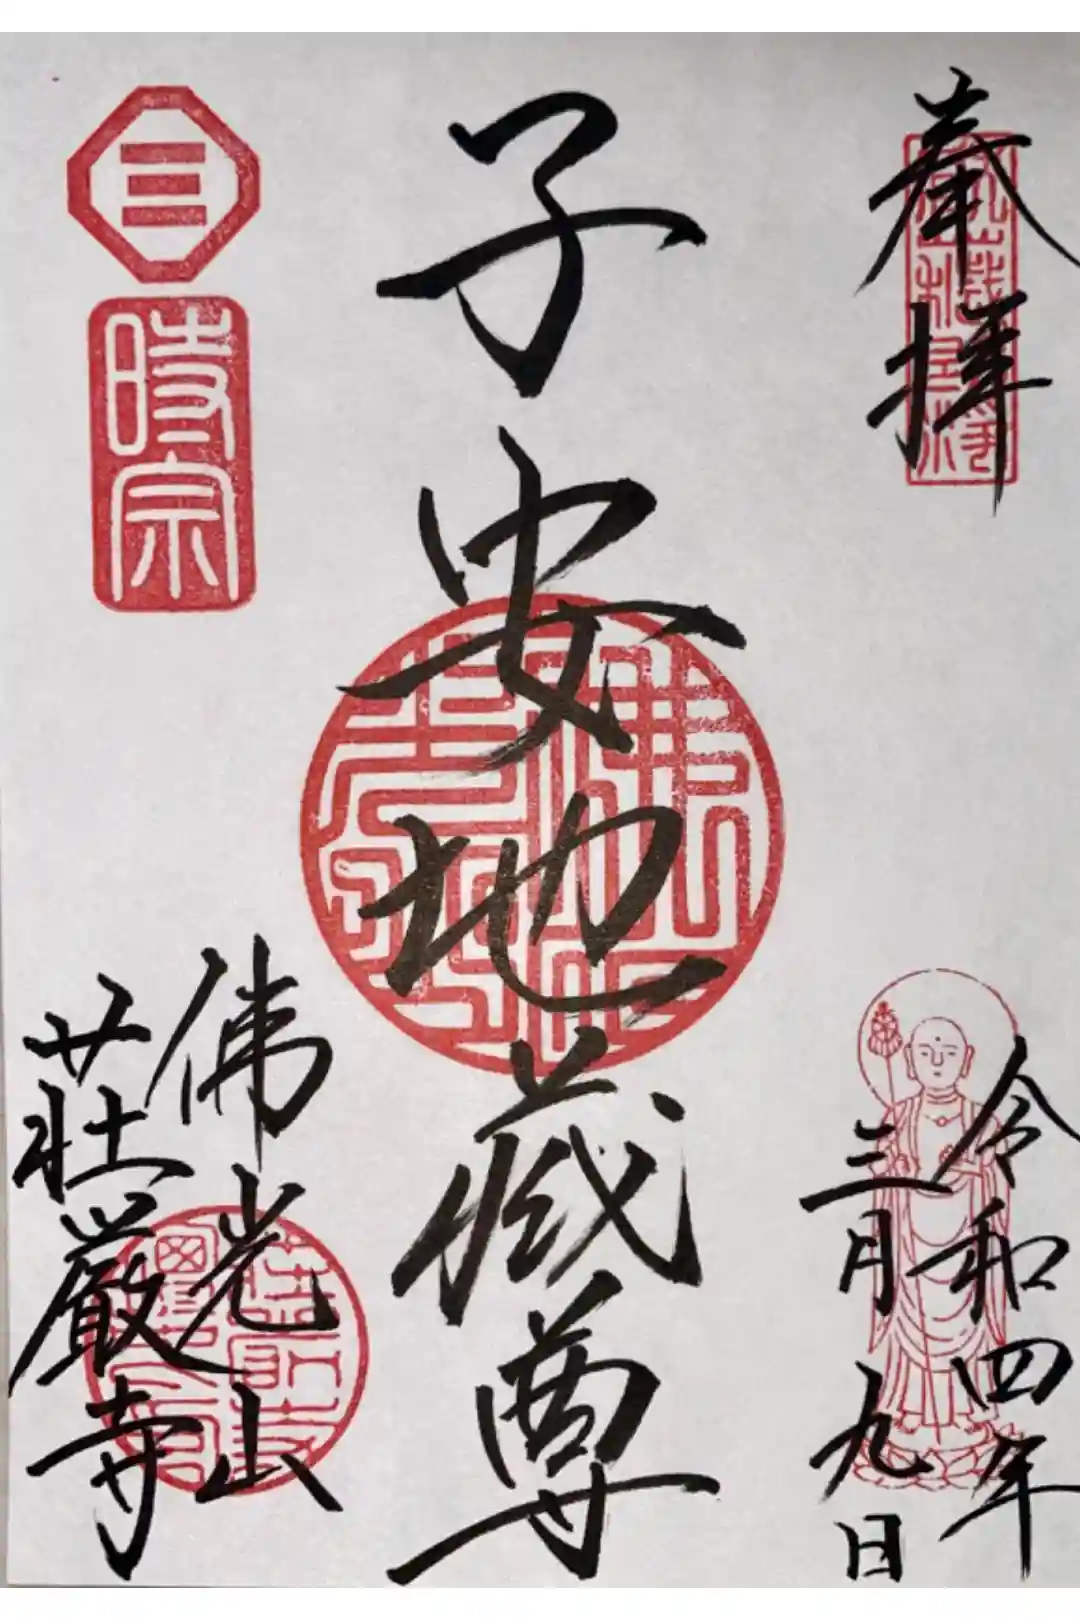 奉拝
令和四年
三月九日
子安地蔵尊
佛光山
荘厳寺
時宗